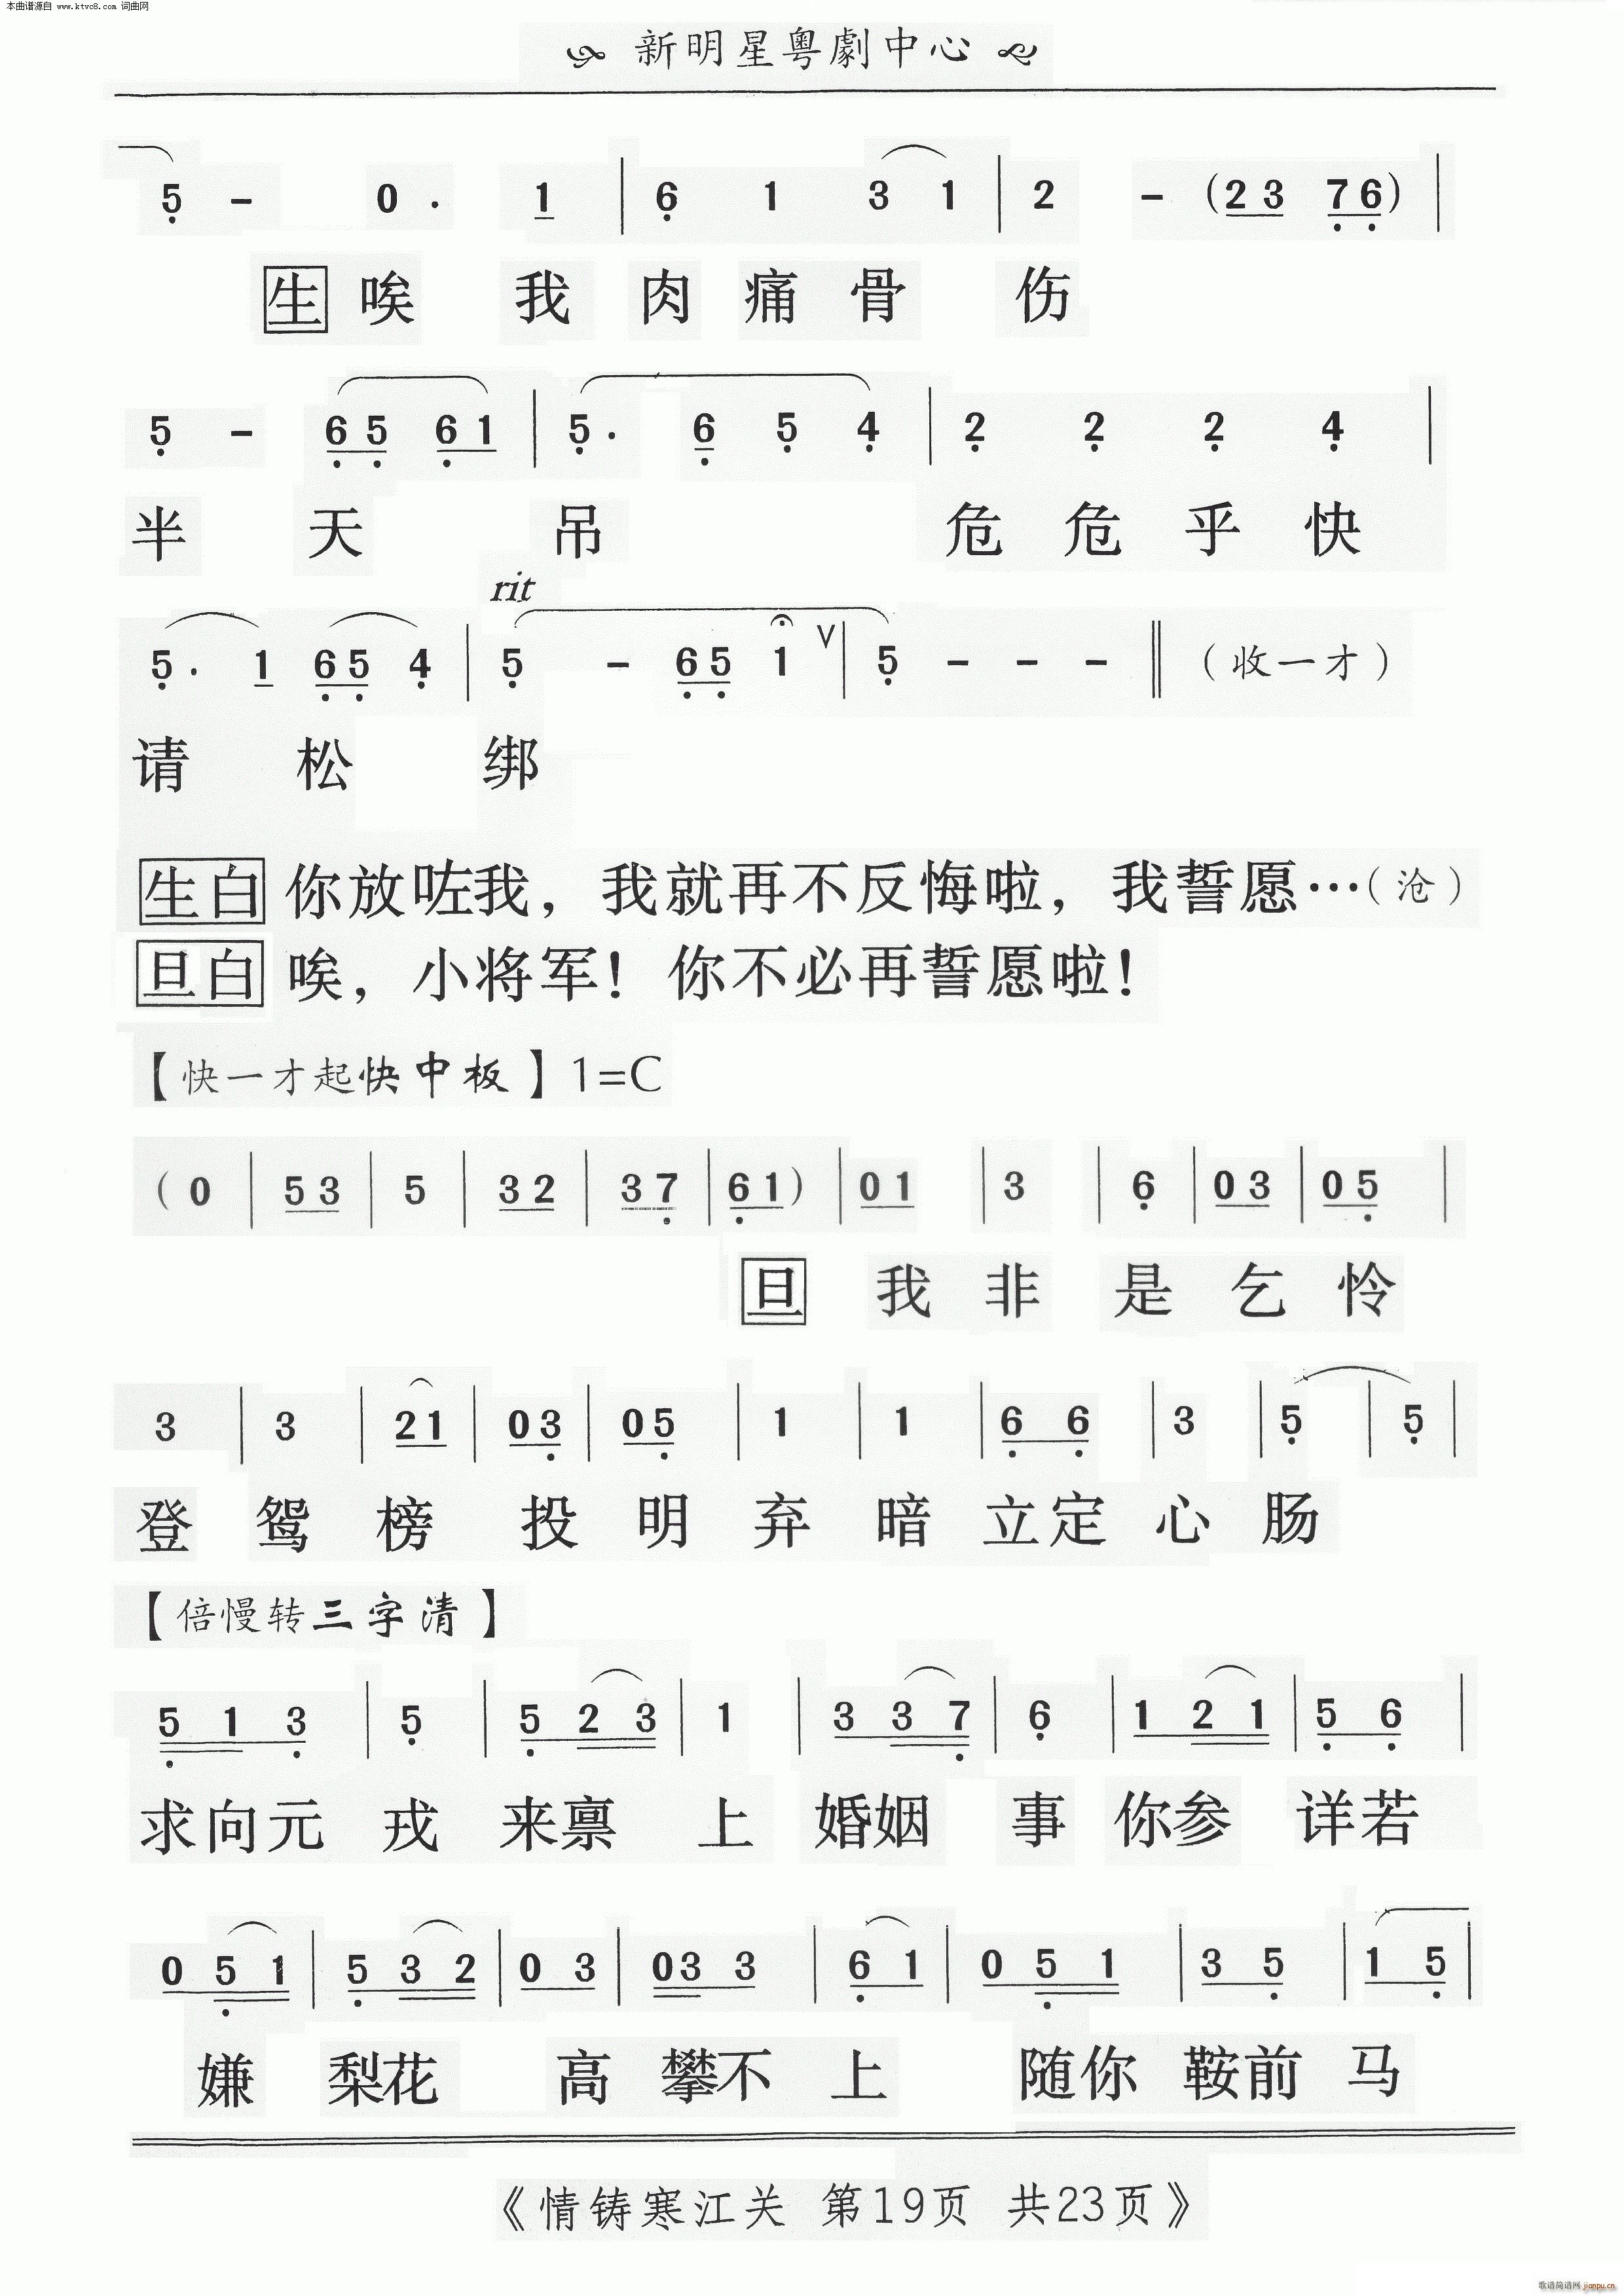 本曲谱源自 www.ktvc8.com 词曲网
新明星粤劇中心
5 - 0 . 1 | 6 1 3 1 | 2 - (2 3 7 6) |
生 唉 我 肉 痛 骨 伤
5 - 6 5 6 1 | 5 . 6 5 4 | 2 2 2 4 |
半 天 吊 危 危 乎 快
rit
5 . 1 6 5 4 | 5 - 6 5 1 V | 5 - - - ‖ (收一才)
请 松 绑
生白 你放咗我，我就再不反悔啦，我誓愿…(沧)
旦白 唉，小将军！你不必再誓愿啦！
【快一才起快中板】1=C
(0 | 5 3 | 5 | 3 2 | 3 7 | 6 1) | 0 1 | 3 | 6 | 0 3 | 0 5 |
旦 我 非 是 乞 怜
3 | 3 | 2 1 | 0 3 | 0 5 | 1 | 1 | 6 6 | 3 | 5 | 5 |
登 鸳 榜 投 明 弃 暗 立定 心 肠
【倍慢转三字清】
5 1 3 | 5 | 5 2 3 | 1 | 3 3 7 | 6 | 1 2 1 | 5 6 |
求向元 戎 来禀 上 婚姻 事 你参 详若
0 5 1 | 5 3 2 | 0 3 | 03 3 | 6 1 | 0 5 1 | 3 5 | 1 5 |
嫌 梨花 高 攀不 上 随你 鞍前 马
《情铸寒江关 第19页 共23页》
歌谱简谱网 jianpu.cn